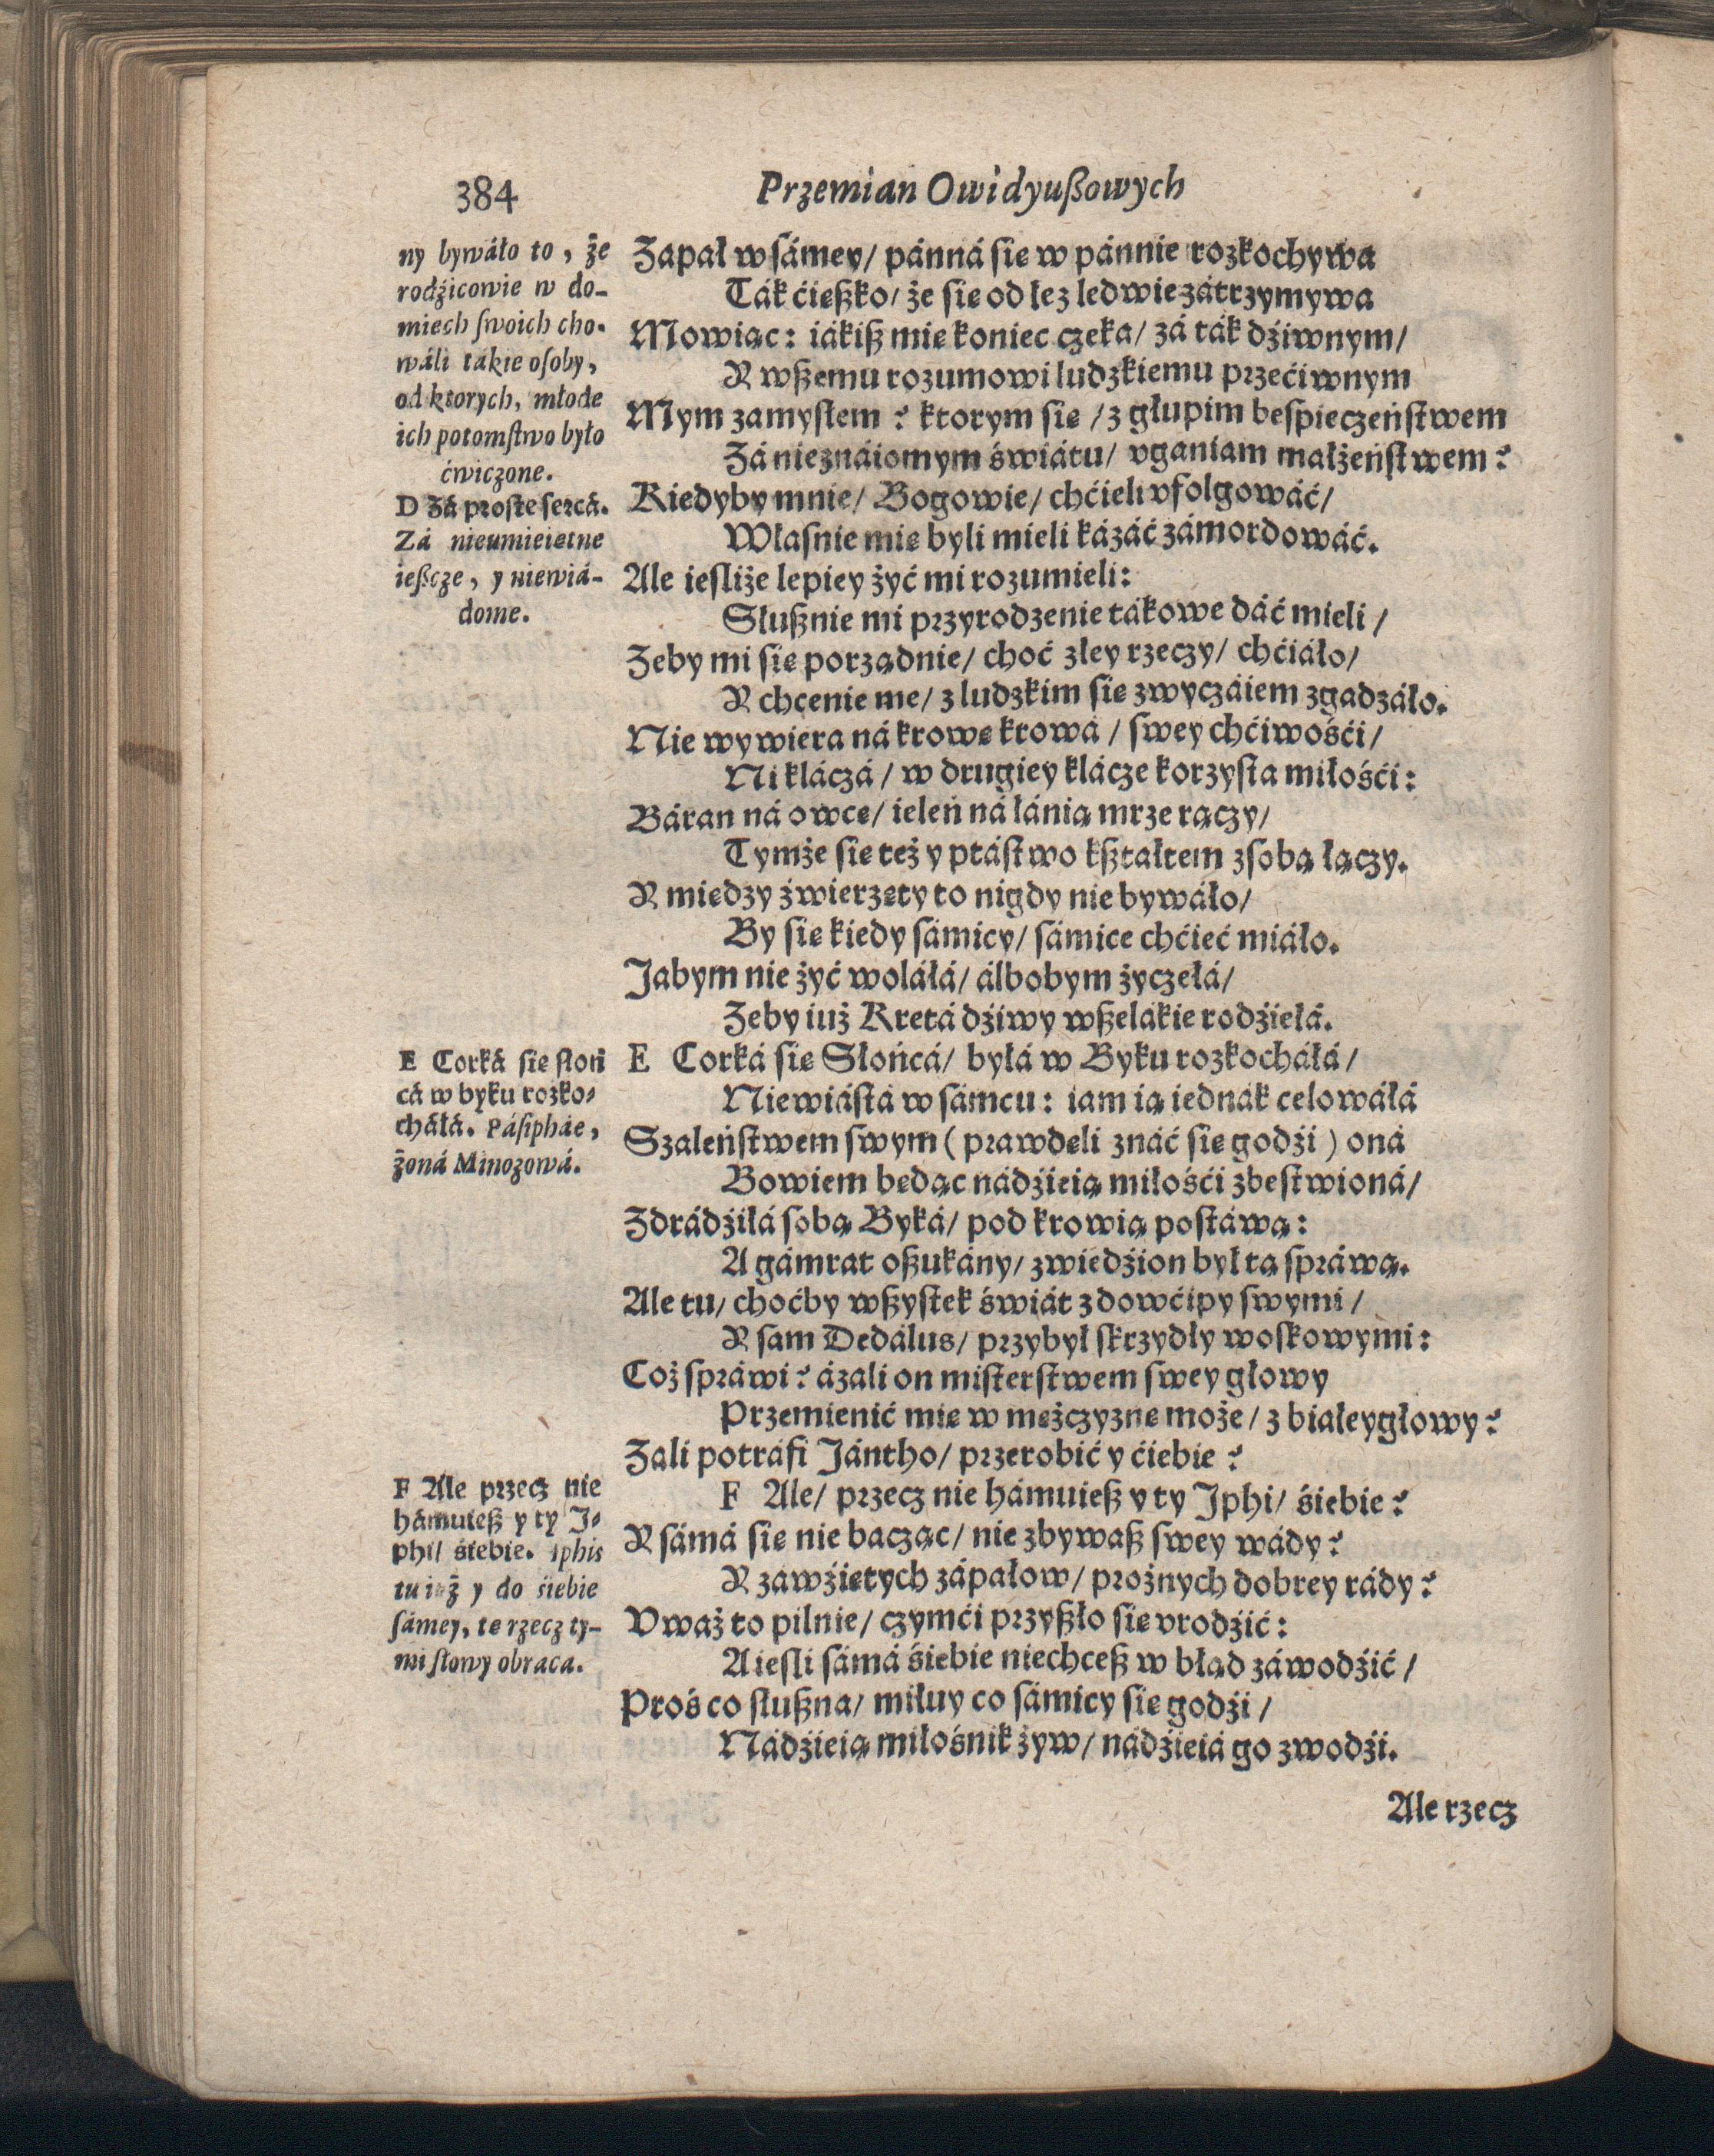 384
Przemian Owidyußowych
ny bywáło to, że
rodźicowie w do-
miech ſwoich cho-
wáli tákie oſoby,
od ktorych, młode
ich potomſtwo było
ćwiczone.
D Zá proſte ſercá.
Zá nieumieiętne
ieſzcze, y niewiá-
dome.
E Corká ſie ſłoń
cá w byku rozko-
cháłá. Páſipháe,
żoná Minozowá.
F Ale przecz nie
hámuieß y ty J-
phi/ śiebie. Iphis
tu iuż y do śiebie
ſámey, tę rzecz ty-
mi ſłowy obraca.
Zapał w ſámey/ pánná ſie w pánnie rozkochywa
Ták ćięßko/ że ſie od łez ledwie zátrzymywa
Mowiąc: iákiß mię koniec czeka/ zá ták dźiwnym/
Y wßemu rozumowi ludzkiemu przećiwnym
Mym zamyſłem? ktorym ſię /z głupim beſpieczeńſtwem
Zá nieznáiomym świátu/ vganiam małżeńſtwem?
Kiedyby mnie/ Bogowie/ chćieli vfolgowáć/
Własnie mię byli mieli kázáć zámordowáć.
Ale ieſliże lepiey żyć mi rozumieli:
Słußnie mi przyrodzenie tákowe dáć mieli /
Zeby mi ſię porządnie/ choć złey rzeczy/ chćiáło/
Y chcenie me/ z ludzkim ſię zwyczáiem zgadzáło.
Nie wywiera ná krowę krowá / ſwey chćiwośći/
Ni kláczá / w drugiey klácze korzyſta miłośći:
Báran ná owcę/ ieleń ná łánią mrze rączy/
Tymże ſię też y ptáſtwo kßtałtem zſobą łączy.
Y miedzy źwierzęty to nigdy nie bywáło/
By ſię kiedy ſámicy/ ſámice chćieć miáło.
Jabym nie żyć woláłá/ álbobym życzełá/
Zeby iuż Kretá dźiwy wßelákie rodźiełá.
E Corká ſię Słońcá/ byłá w Byku rozkocháłá /
Niewiáſtá w ſámcu: iam ią iednák celowáłá
Szaleńſtwem ſwym (prawdęli znáć ſię godźi) oná
Bowiem będąc nádźieią miłośći zbeſtwioná/
Zdrádźiłá ſobą Byká/ pod krowią poſtáwą:
A gámrat oßukány/ zwiedźion był tą ſpráwą.
Ale tu/ choćby wßyſtek świát z dowćipy ſwymi /
Y ſam Dedálus/ przybył ſkrzydły woſkowymi:
Coż ſpráwi? ázali on miſterſtwem ſwey głowy
Przemienić mię w mężczyznę może/ z białeygłowy?
Zali potráfi Jántho/ przerobić y ćiebie?
F Ale/ przecz nie hámuieß y ty Jphi/ śiebie?
Y ſámá ſię nie bacząc/ nie zbywaß ſwey wády?
Y záwźiętych zápałow/ prożnych dobrey rády?
Vważ to pilnie/ czymći przyßło ſię vrodźić:
A ieſli ſámá śiebie niechceß w błąd záwodźić /
Proś co ſłußna/ miłuy co ſámicy ſię godźi /
Nádźieią miłośnik żyw/ nádźieiá go zwodźi.
Ale rzecz